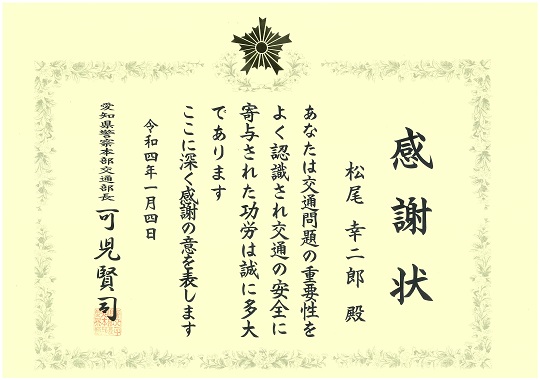 感謝状
松尾 幸二郎 殿
あなたは交通問題の重要性を
よく認識され交通の安全に
寄与された功労は誠に多大
であります
ここに深く感謝の意を表します
令和四年一月四日
愛知県警察本部交通部長 可児賢司